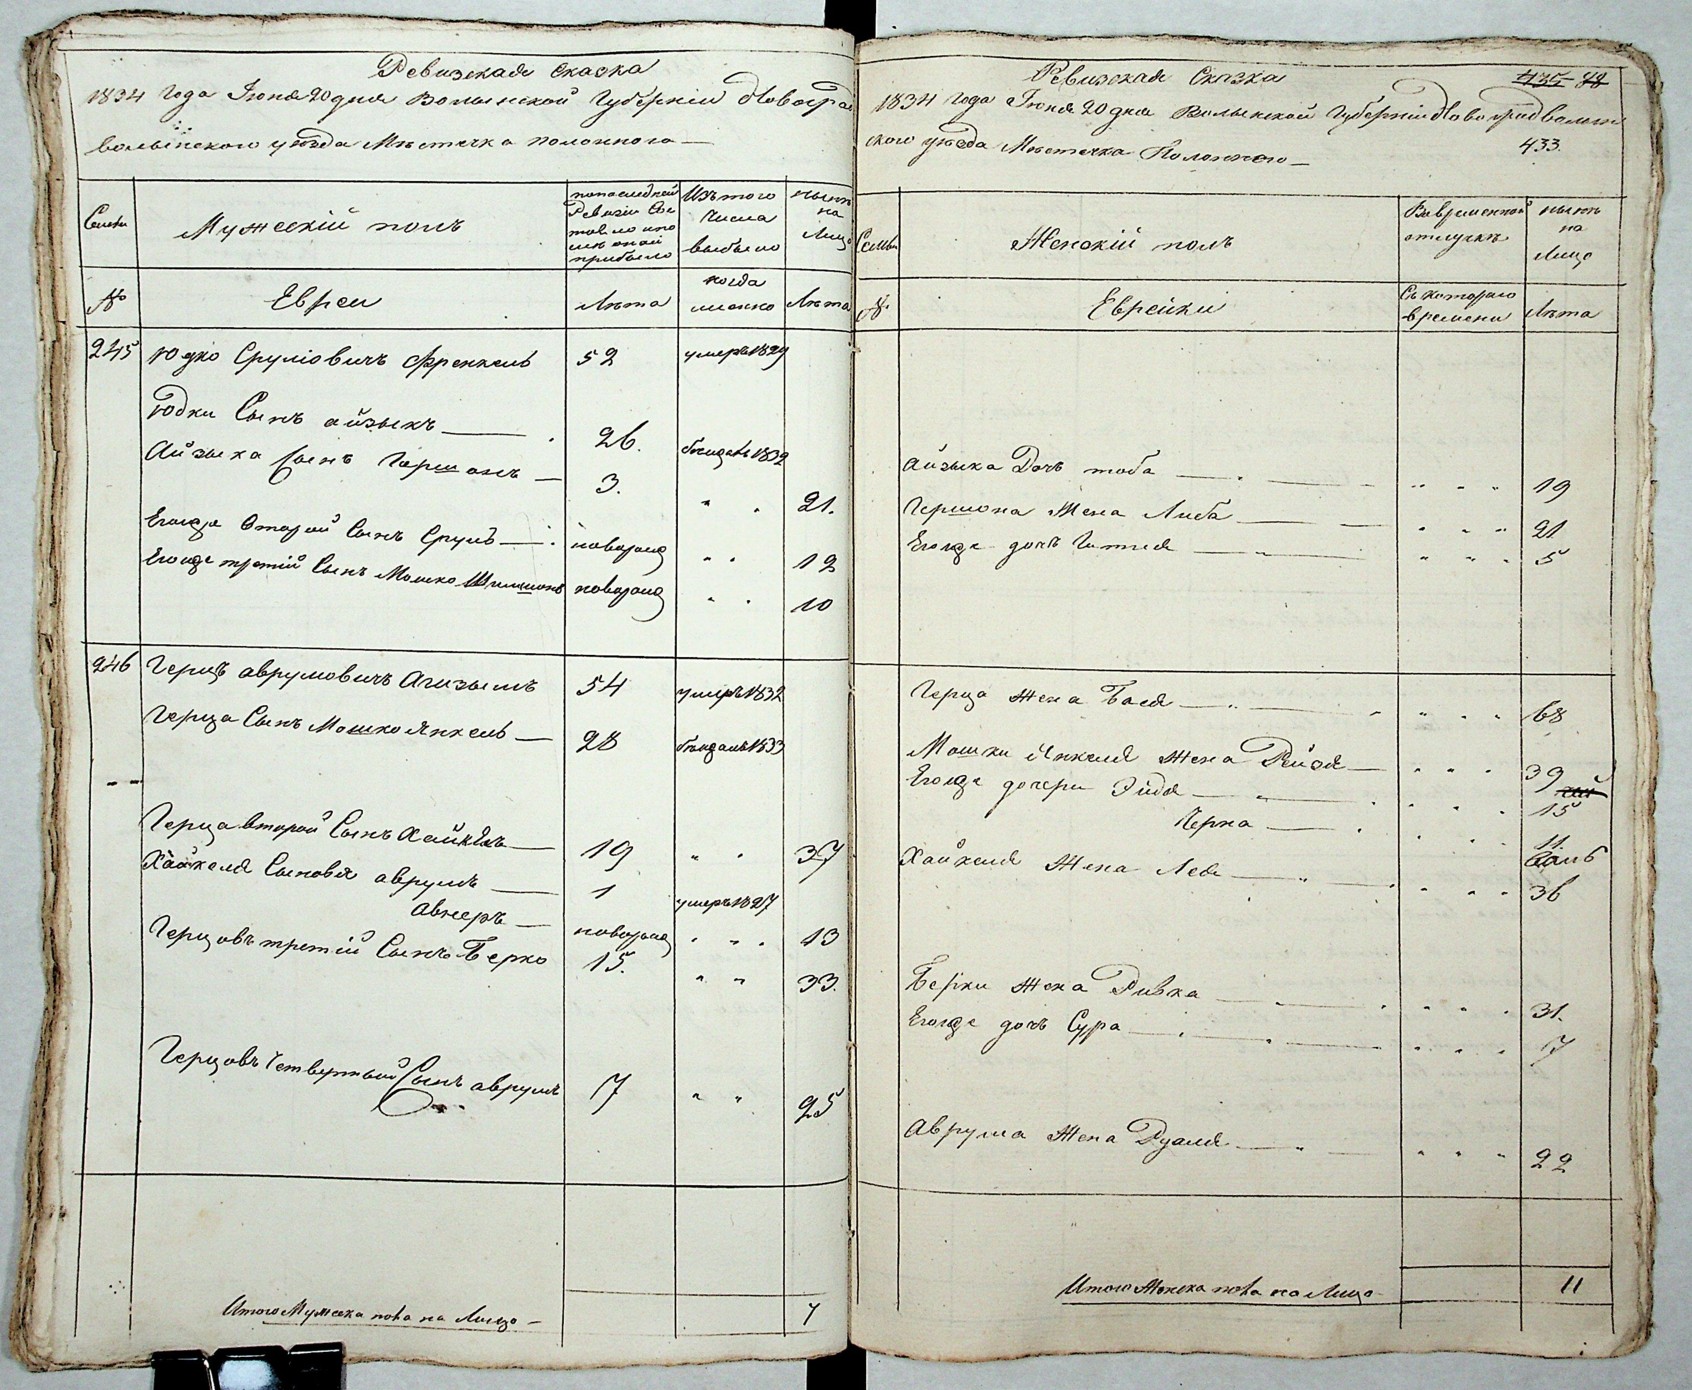 Ревизская Сказка
1834 года Іюня 20 дня Волынской Губерніи Новоград
волынского уѣзда Мѣстечка Полонного —
Семьи
Мужескій полъ
по последней
Ревизіи Со
стояло и по
слѣ оной
прибыло
Изъ того
Числа
выбыло
нынѣ
на
Лицо
№
Евреи
Лѣта
когда
именно
Лѣта
245 Юдко Сруліовичъ Френкель 52 умеръ 1829
Юдки Сынъ айзыкъ — 26. 1832
Айзыка Сынъ Гершонъ — 3. " . 21.
Егожде Второй Сынъ Сруль — новорожд " . 12
Егожде третій Сынъ Мошко Шимшонъ новорожд " . 10
246 Герцъ аврумовичъ 54 умеръ 1832
Герца Сынъ Мошко Янкель — 28 1833
Герца второй Сынъ Хайкель — 19 " . 37
Хайкеля Сыновья аврумъ — 1 умеръ 1827
авнеръ — новорожд . " . 13
Герцовъ третій Сынъ Берко 15. " " 33.
Герцовъ Четвертый Сынъ аврумъ 7 " " 25
Итого Мужеска пола на Лицо — 7
Ревизская Сказка 88
1834 года Іюня 20 дня Волынской Губерніи Новоградволын
ского уѣзда Мѣстечка Полонного — 433.
Семьи
Женскій полъ
Во временной
отлучкѣ
нынѣ
на
Лицо
№.
Еврейки
Съ котораго
времени
Лѣта
айзыка Дочь тоба — " " " 19
Гершона Жена Либа — " " " 21
Егожде дочь Гитля — " " " 5
Герца Жена Бася — " " " 68
Мошки Янкеля Жена Рейзя — " " " 39
Егожде дочери Эйдя — " " " 15
Черна — " " " 11.
Хайкеля Жена Лея — " " " 36
Берки Жена Ривка — " " " 31.
Егожде дочь Сура — " " " 7
Аврума Жена — " " " 22
Итого Женска пола на Лицо — 11